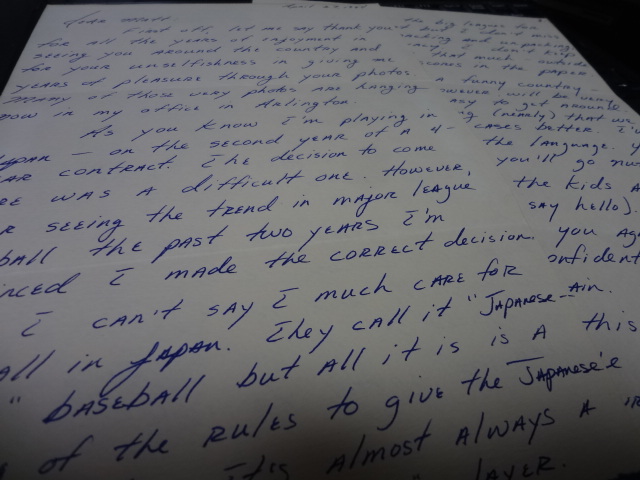 First off, let me say thank you
for all the years of enjoyment in
seeing you around the country and
for your unselfishness in giving me
years of pleasure through your photos.
Many of those very photos are hanging
now in my office in Arlington.
As you know I'm playing in
Japan — on the second year of a 4-
ear contract. The decision to come
ere was a difficult one. However,
r seeing the trend in major league
ball the past two years I'm
inced I made the correct decision.
I can't say I much care for
all in Japan. They call it "Japanese-
" baseball but all it is is a
of the rules to give the Japanese
It's almost always a
layer.
the big league
packing and unpacking
that much outside
comes in the paper
a funny country -
owever will be
asy to get around
(nearly) that we
cases better. I'
the language. Y
you'll go nu
the kids a
say hello).
you aga
onfident
ain.
this